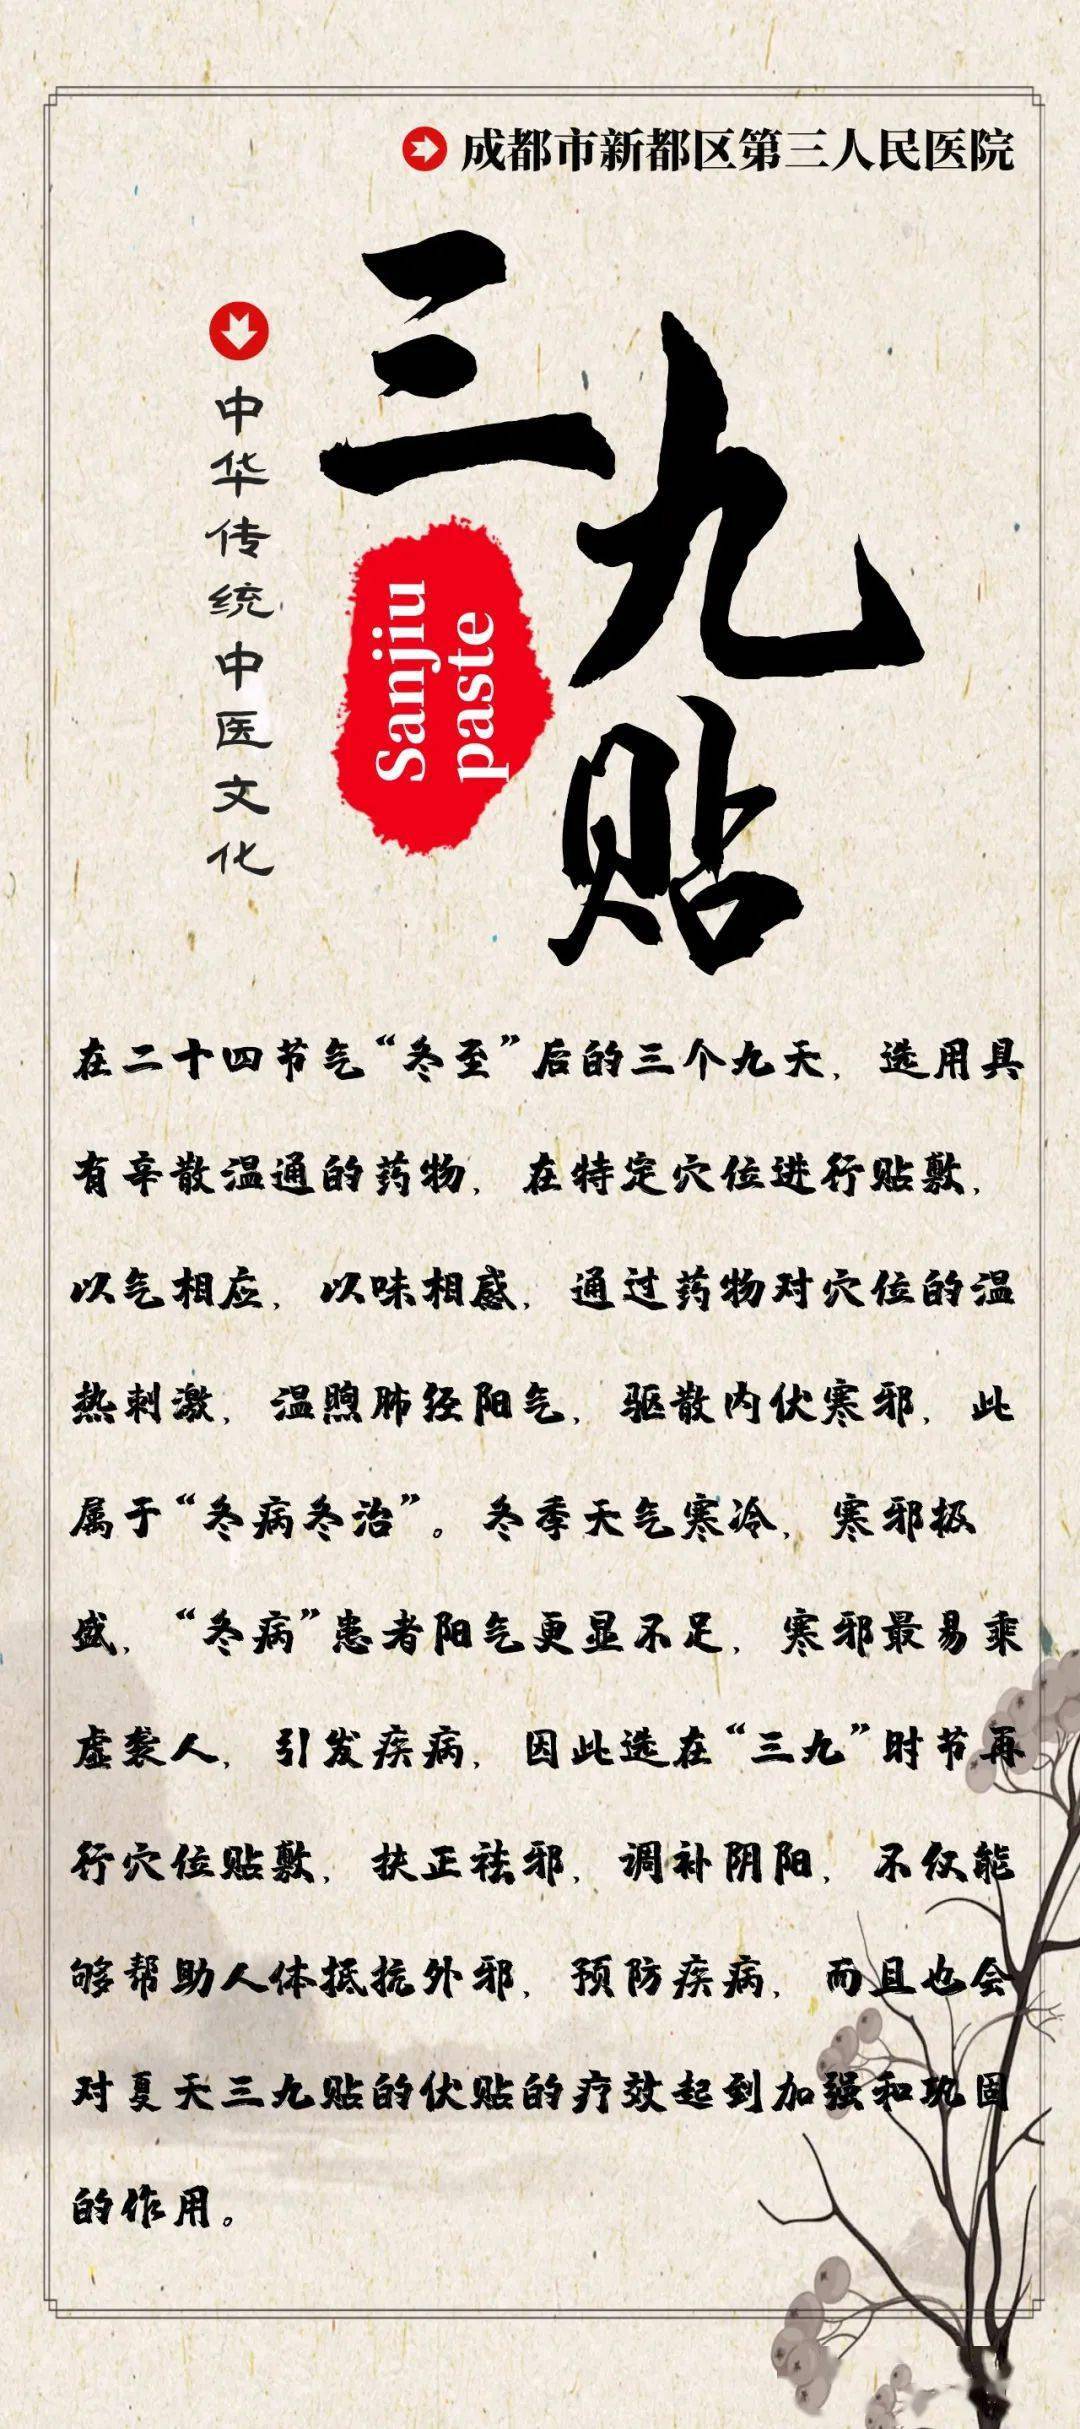 成都市新都区第三人民医院
三九贴
中华传统中医文化
Sanjiu
paste
在二十四节气“冬至”后的三个九天，选用具
有辛散温通的药物，在特定穴位进行贴敷，
以气相应，以味相感，通过药物对穴位的温
热刺激，温煦肺经阳气，驱散内伏寒邪，此
属于“冬病冬治”。冬季天气寒冷，寒邪极
盛，“冬病”患者阳气更显不足，寒邪最易乘
虚袭人，引发疾病，因此选在“三九”时节再
行穴位贴敷，扶正祛邪，调补阴阳，不仅能
够帮助人体抵抗外邪，预防疾病，而且也会
对夏天三九贴的伏贴的疗效起到加强和巩固
的作用。